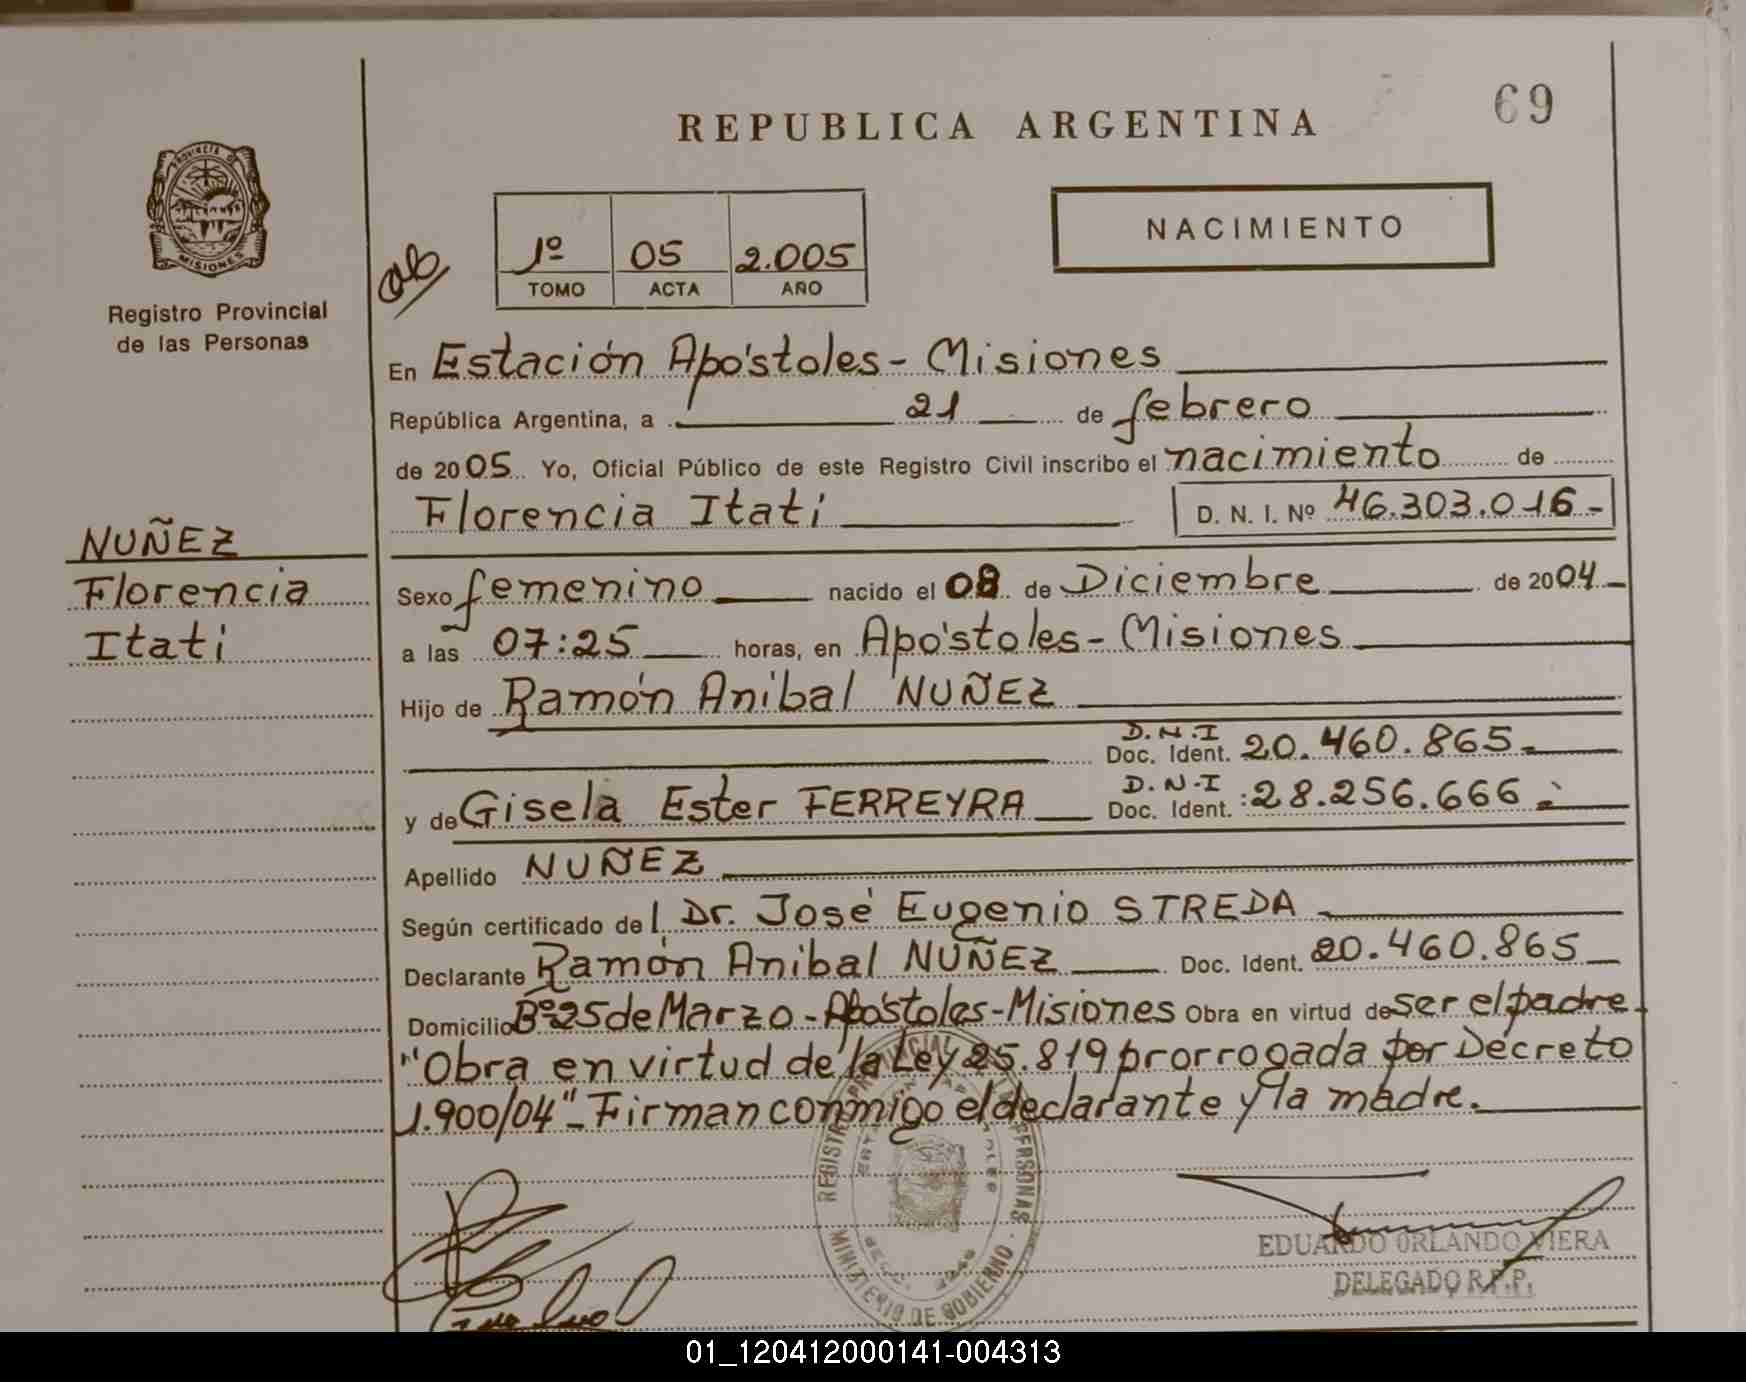 REPUBLICA ARGENTINA
69
PROVINCIA DE
MISIONES
Registro Provincial
de las Personas
1º 05 2.005
TOMO ACTA AÑO
NACIMIENTO
En Estación Apóstoles - Misiones
República Argentina, a 21 de febrero
de 2005 Yo, Oficial Público de este Registro Civil inscribo el nacimiento de
Florencia Itati D. N. I. Nº 46.303.016-
NUÑEZ
Florencia
Itati
Sexo femenino nacido el 08 de Diciembre de 2004
a las 07:25 horas, en Apóstoles - Misiones
Hijo de Ramón Anibal NUÑEZ
D.N.I
Doc. Ident. 20.460.865-
D.N.I
y de Gisela Ester FERREYRA Doc. Ident. :28.256.666-
Apellido NUÑEZ
Según certificado de l Dr. José Eugenio STREDA
Declarante Ramón Anibal NUÑEZ Doc. Ident. 20.460.865
Domicilio Bº 25 de Marzo - Apóstoles - Misiones Obra en virtud de ser el padre.
"Obra en virtud de la Ley 25.819 prorrogada por Decreto
1.900/04" - Firman conmigo el declarante y la madre.
REGISTRO PROVINCIAL DE LAS PERSONAS - MINISTERIO DE GOBIERNO
EDUARDO ORLANDO VIERA
DELEGADO R.P.P.
01_120412000141-004313